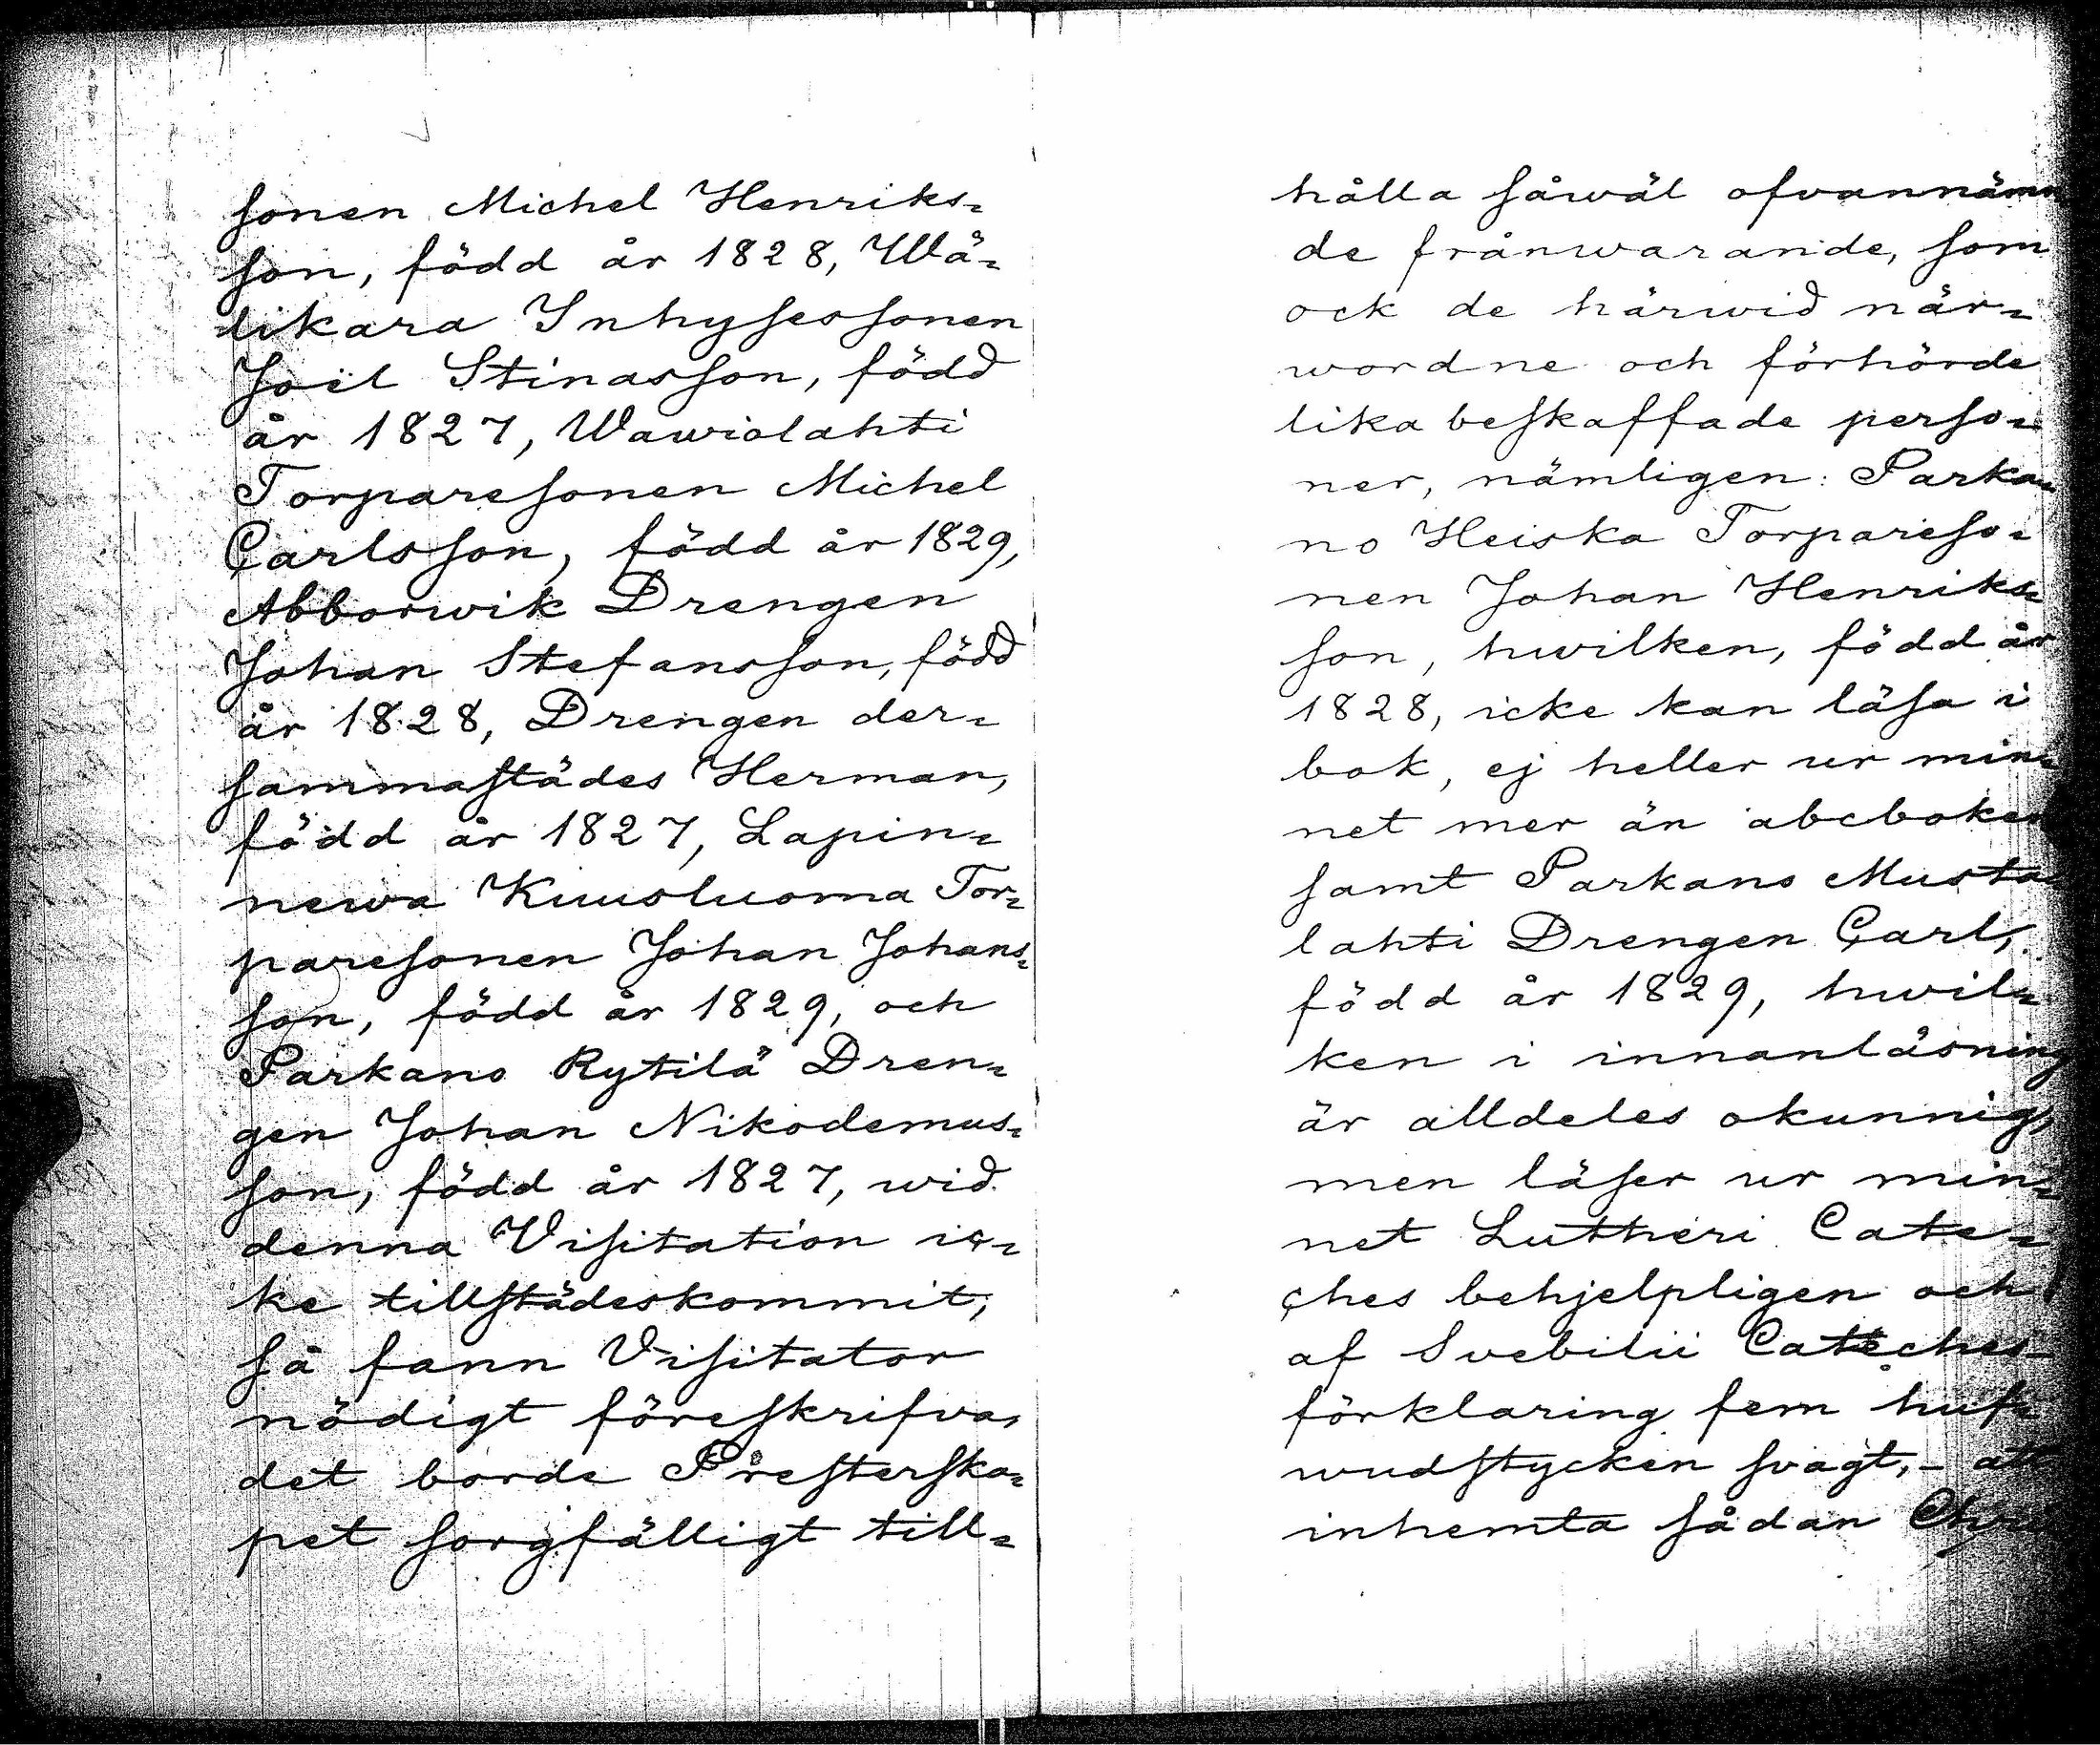 sonen Michel Henriks=
son, född år 1828, Wä=
likara Inhysessonen
Joël Stinasson, född
år 1827, Wawiolahti
Torparesonen Michel
Carlsson, född år 1829,
Abborwik Drengen
Johan Stefansson, född
år 1828, Drengen der=
sammastädes Herman,
född år 1827, Lapin=
newa Kuusluoma Tor=
paresonen Johan Johans=
son, född år 1829, och
Parkano Rytilä Dren=
gen Johan Nikodemus=
son, född år 1827, wid
denna Visitation ic=
ke tillstädeskommit,
så fann Visitator
nödigt föreskrifva,
det borde Presterska=
pet sorgfälligt till=
hålla såwäl ofvannämn
de frånwarande, som
ock de härwid när=
wordne och förhörde
lika beskaffade perso=
ner, nämligen: Parka=
no Heiska Torpareso=
nen Johan Henriks=
son, hwilken, född år
1828, icke kan läsa i
bok, ej heller ur min=
net mer än abcboken
samt Parkano Musta
lahti Drengen Carl,
född år 1829, hwil=
ken i innanläsning
är alldeles okunnig,
men läser ur min=
net Lutheri Cate=
ches behjelpligen och
af Svebilii Cateches
förklaring fem huf=
wudstycken svagt, - att
inhemta sådan